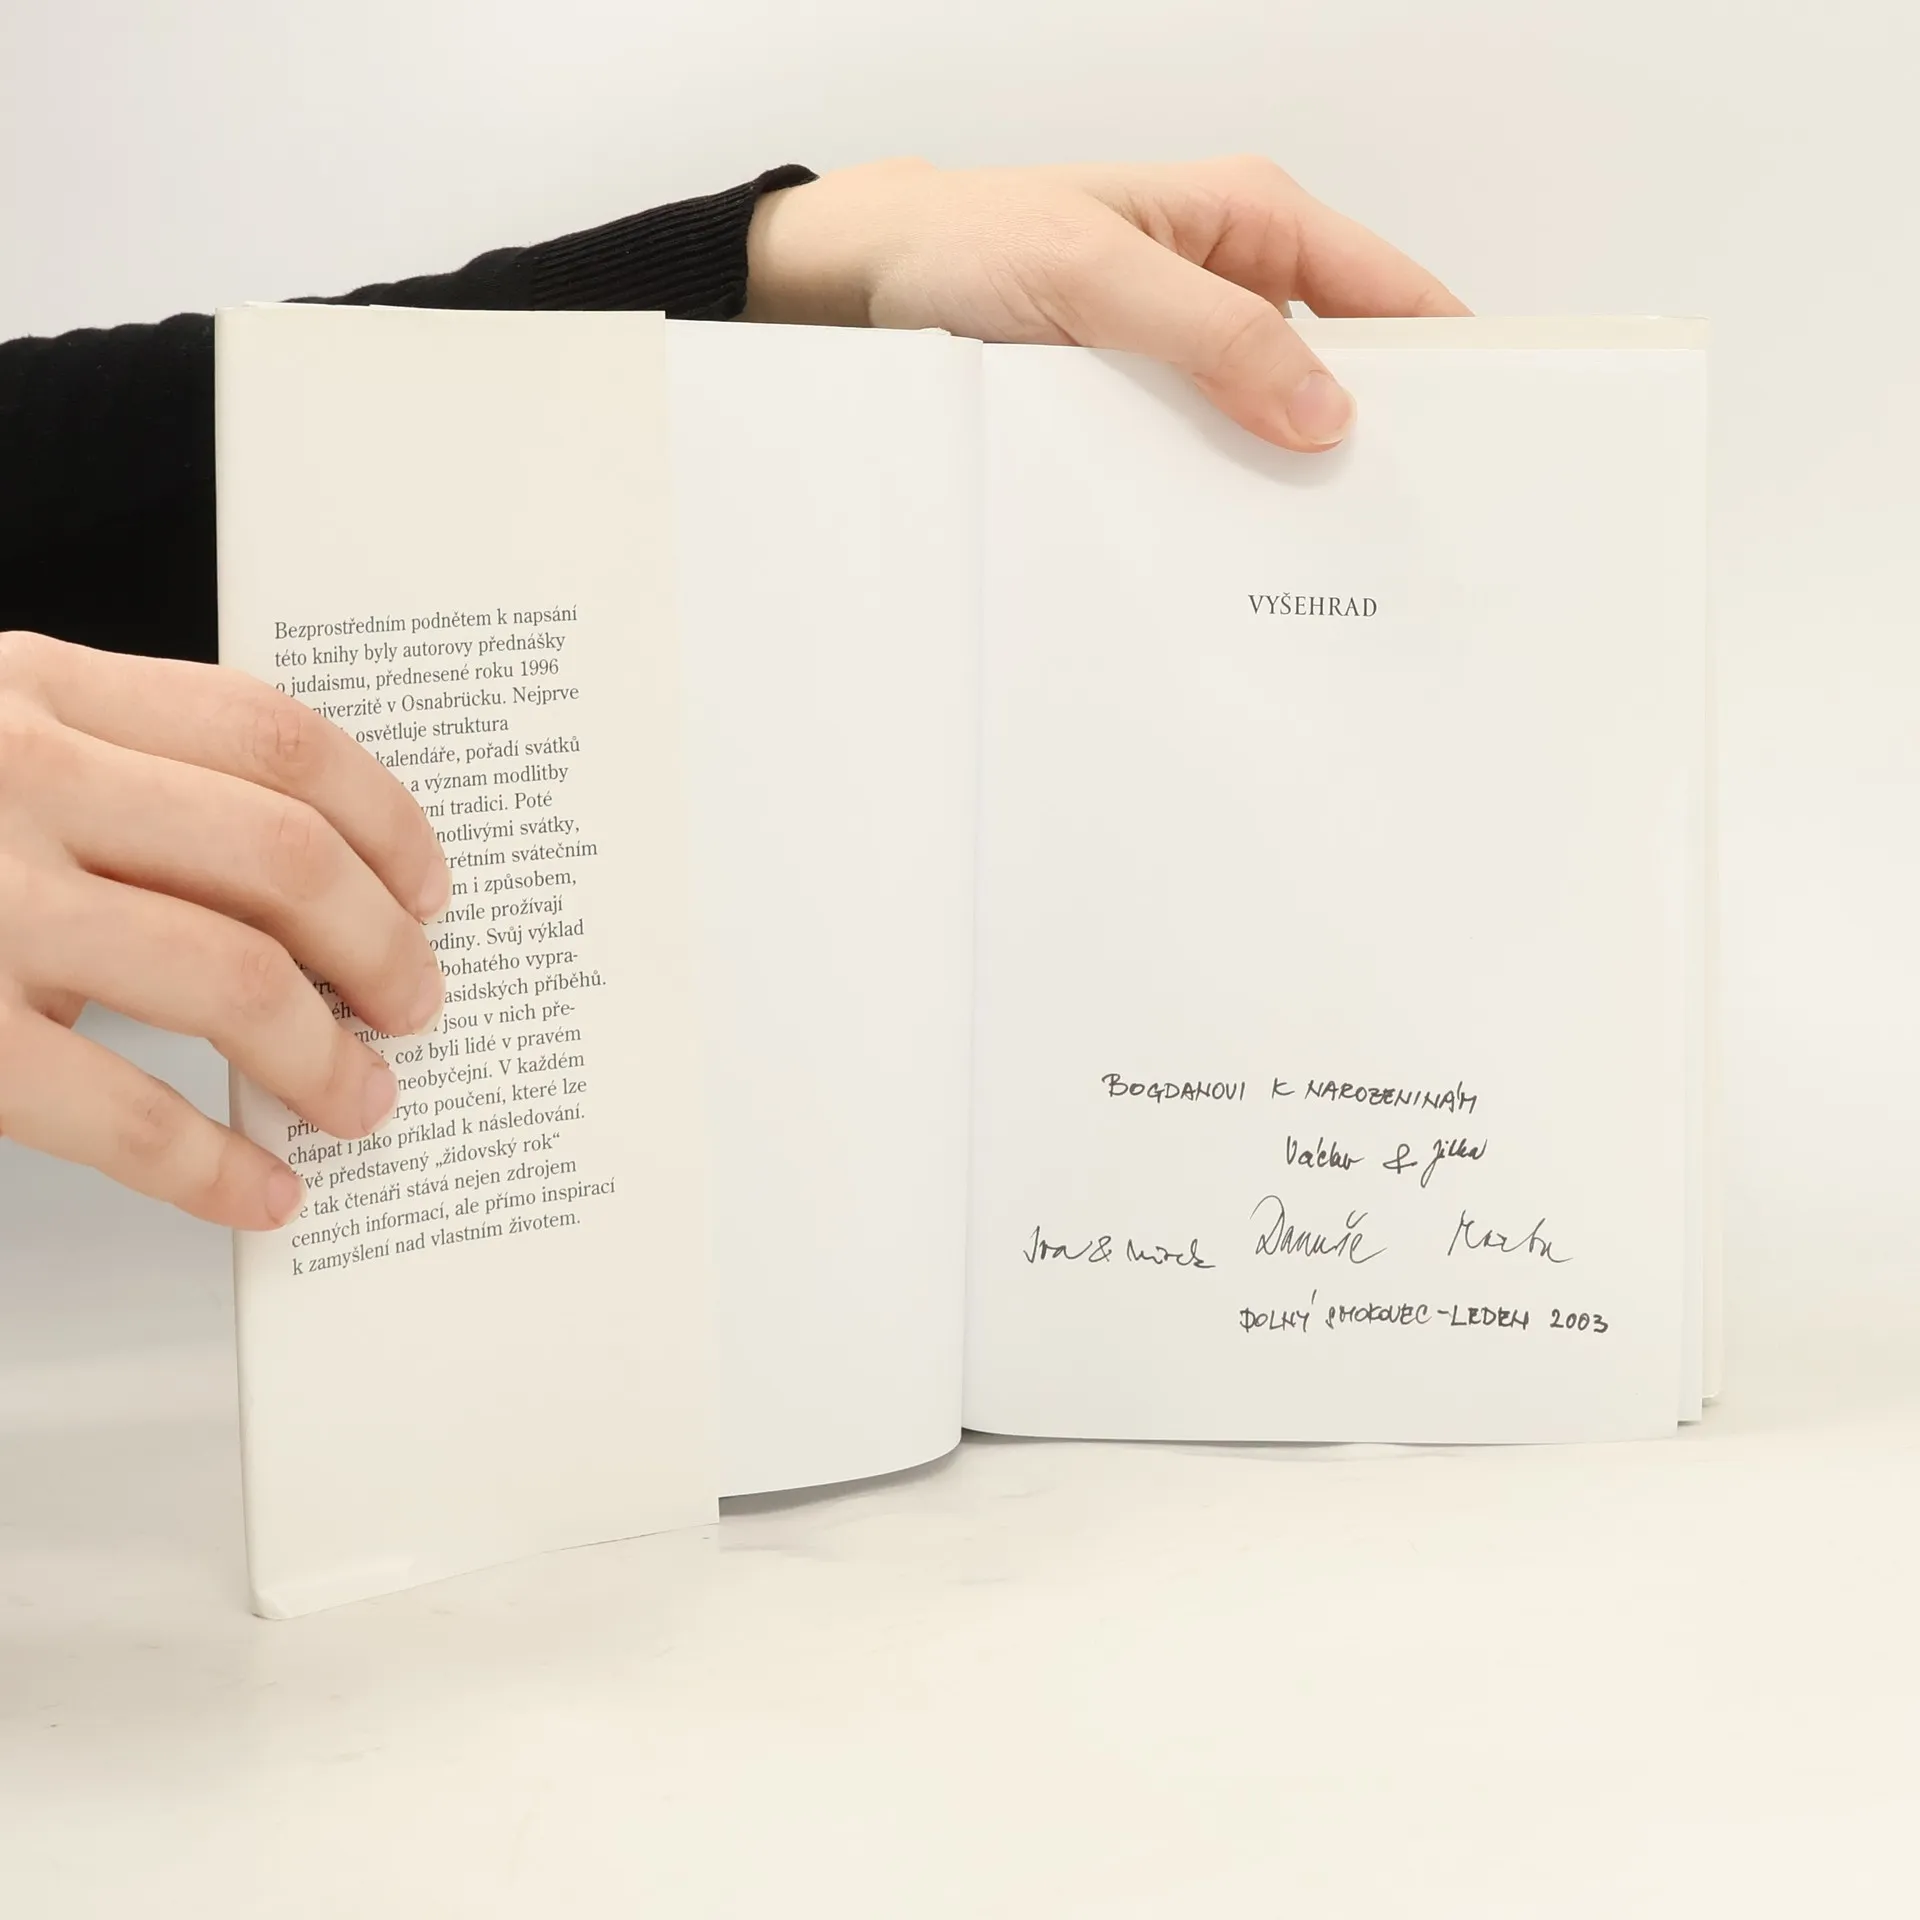 Bezprostředním podnětem k napsání
této knihy byly autorovy přednášky
o judaismu, přednesené roku 1996
niverzitě v Osnabrücku. Nejprve
osvětluje struktura
kalendáře, pořadí svátků
a význam modlitby
vní tradici. Poté
notlivými svátky,
krétním svátečním
m i způsobem,
chvíle prožívají
odiny. Svůj výklad
bohatého vypra-
asidských příběhů.
jsou v nich pře-
což byli lidé v pravém
neobyčejní. V každém
ryto poučení, které lze
chápat i jako příklad k následování.
ivě představený „židovský rok“
e tak čtenáři stává nejen zdrojem
cenných informací, ale přímo inspirací
k zamyšlení nad vlastním životem.
VYŠEHRAD
BOGDANOVI K NAROZENINÁM
Václav & Jitka
Iva & Mirek Danuše Marta
DOLNÝ SMOKOVEC - LEDEN 2003